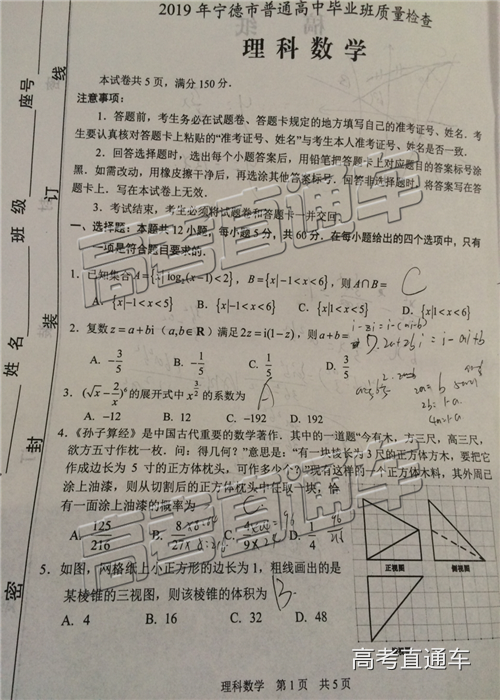 2019 年宁德市普通高中毕业班质量检查
理科数学
本试卷共 5 页，满分 150 分．
注意事项：
1．答题前，考生务必在试题卷、答题卡规定的地方填写自己的准考证号、姓名．考
生要认真核对答题卡上粘贴的“准考证号、姓名”与考生本人准考证号、姓名是否一致．
2．回答选择题时，选出每个小题答案后，用铅笔把答题卡上对应题目的答案标号涂
黑．如需改动，用橡皮擦干净后，再选涂其他答案标号．回答非选择题时，将答案写在答
题卡上．写在本试卷上无效．
3．考试结束，考生必须将试题卷和答题卡一并交回．
一、选择题：本题共 12 小题，每小题 5 分，共 60 分．在每小题给出的四个选项中，只有
一项是符合题目要求的．
1．已知集合 A={x|log₂(x−1)<2}，B={x|−1<x<6}，则 A∩B= C
A．{x|−1<x<5} B．{x|−1<x<6} C．{x|1<x<5} D．{x|1<x<6}
2．复数 z=a+bi（a,b∈R）满足 2z=i(1−z)，则 a+b=
A．−3/5 B．−1/5 C．1/5 D．3/5
3．(√x−2/x)⁶ 的展开式中 x^(3/2) 的系数为 A
A．−12 B．12 C．−192 D．192
4．《孙子算经》是中国古代重要的数学著作．其中的一道题“今有木，方三尺，高三尺，
欲方五寸作枕一枚．问：得几何？”意思是：“有一块棱长为 3 尺的正方体方木，要把它
作成边长为 5 寸的正方体枕头，可作多少个？”现有这样的一个正方体木料，其外周已
涂上油漆，则从切割后的正方体枕头中任取一块，恰
有一面涂上油漆的概率为
A．125/216 B．8/27 C．4/9 D．1/4
5．如图，网格纸上小正方形的边长为 1，粗线画出的是
某棱锥的三视图，则该棱锥的体积为 B
A．4 B．16 C．32 D．48
正视图 侧视图
理科数学 第 1 页 共 5 页
座号
班级
姓名
线
订
装
封
密
高考直通车
高考直通车
高考直通车